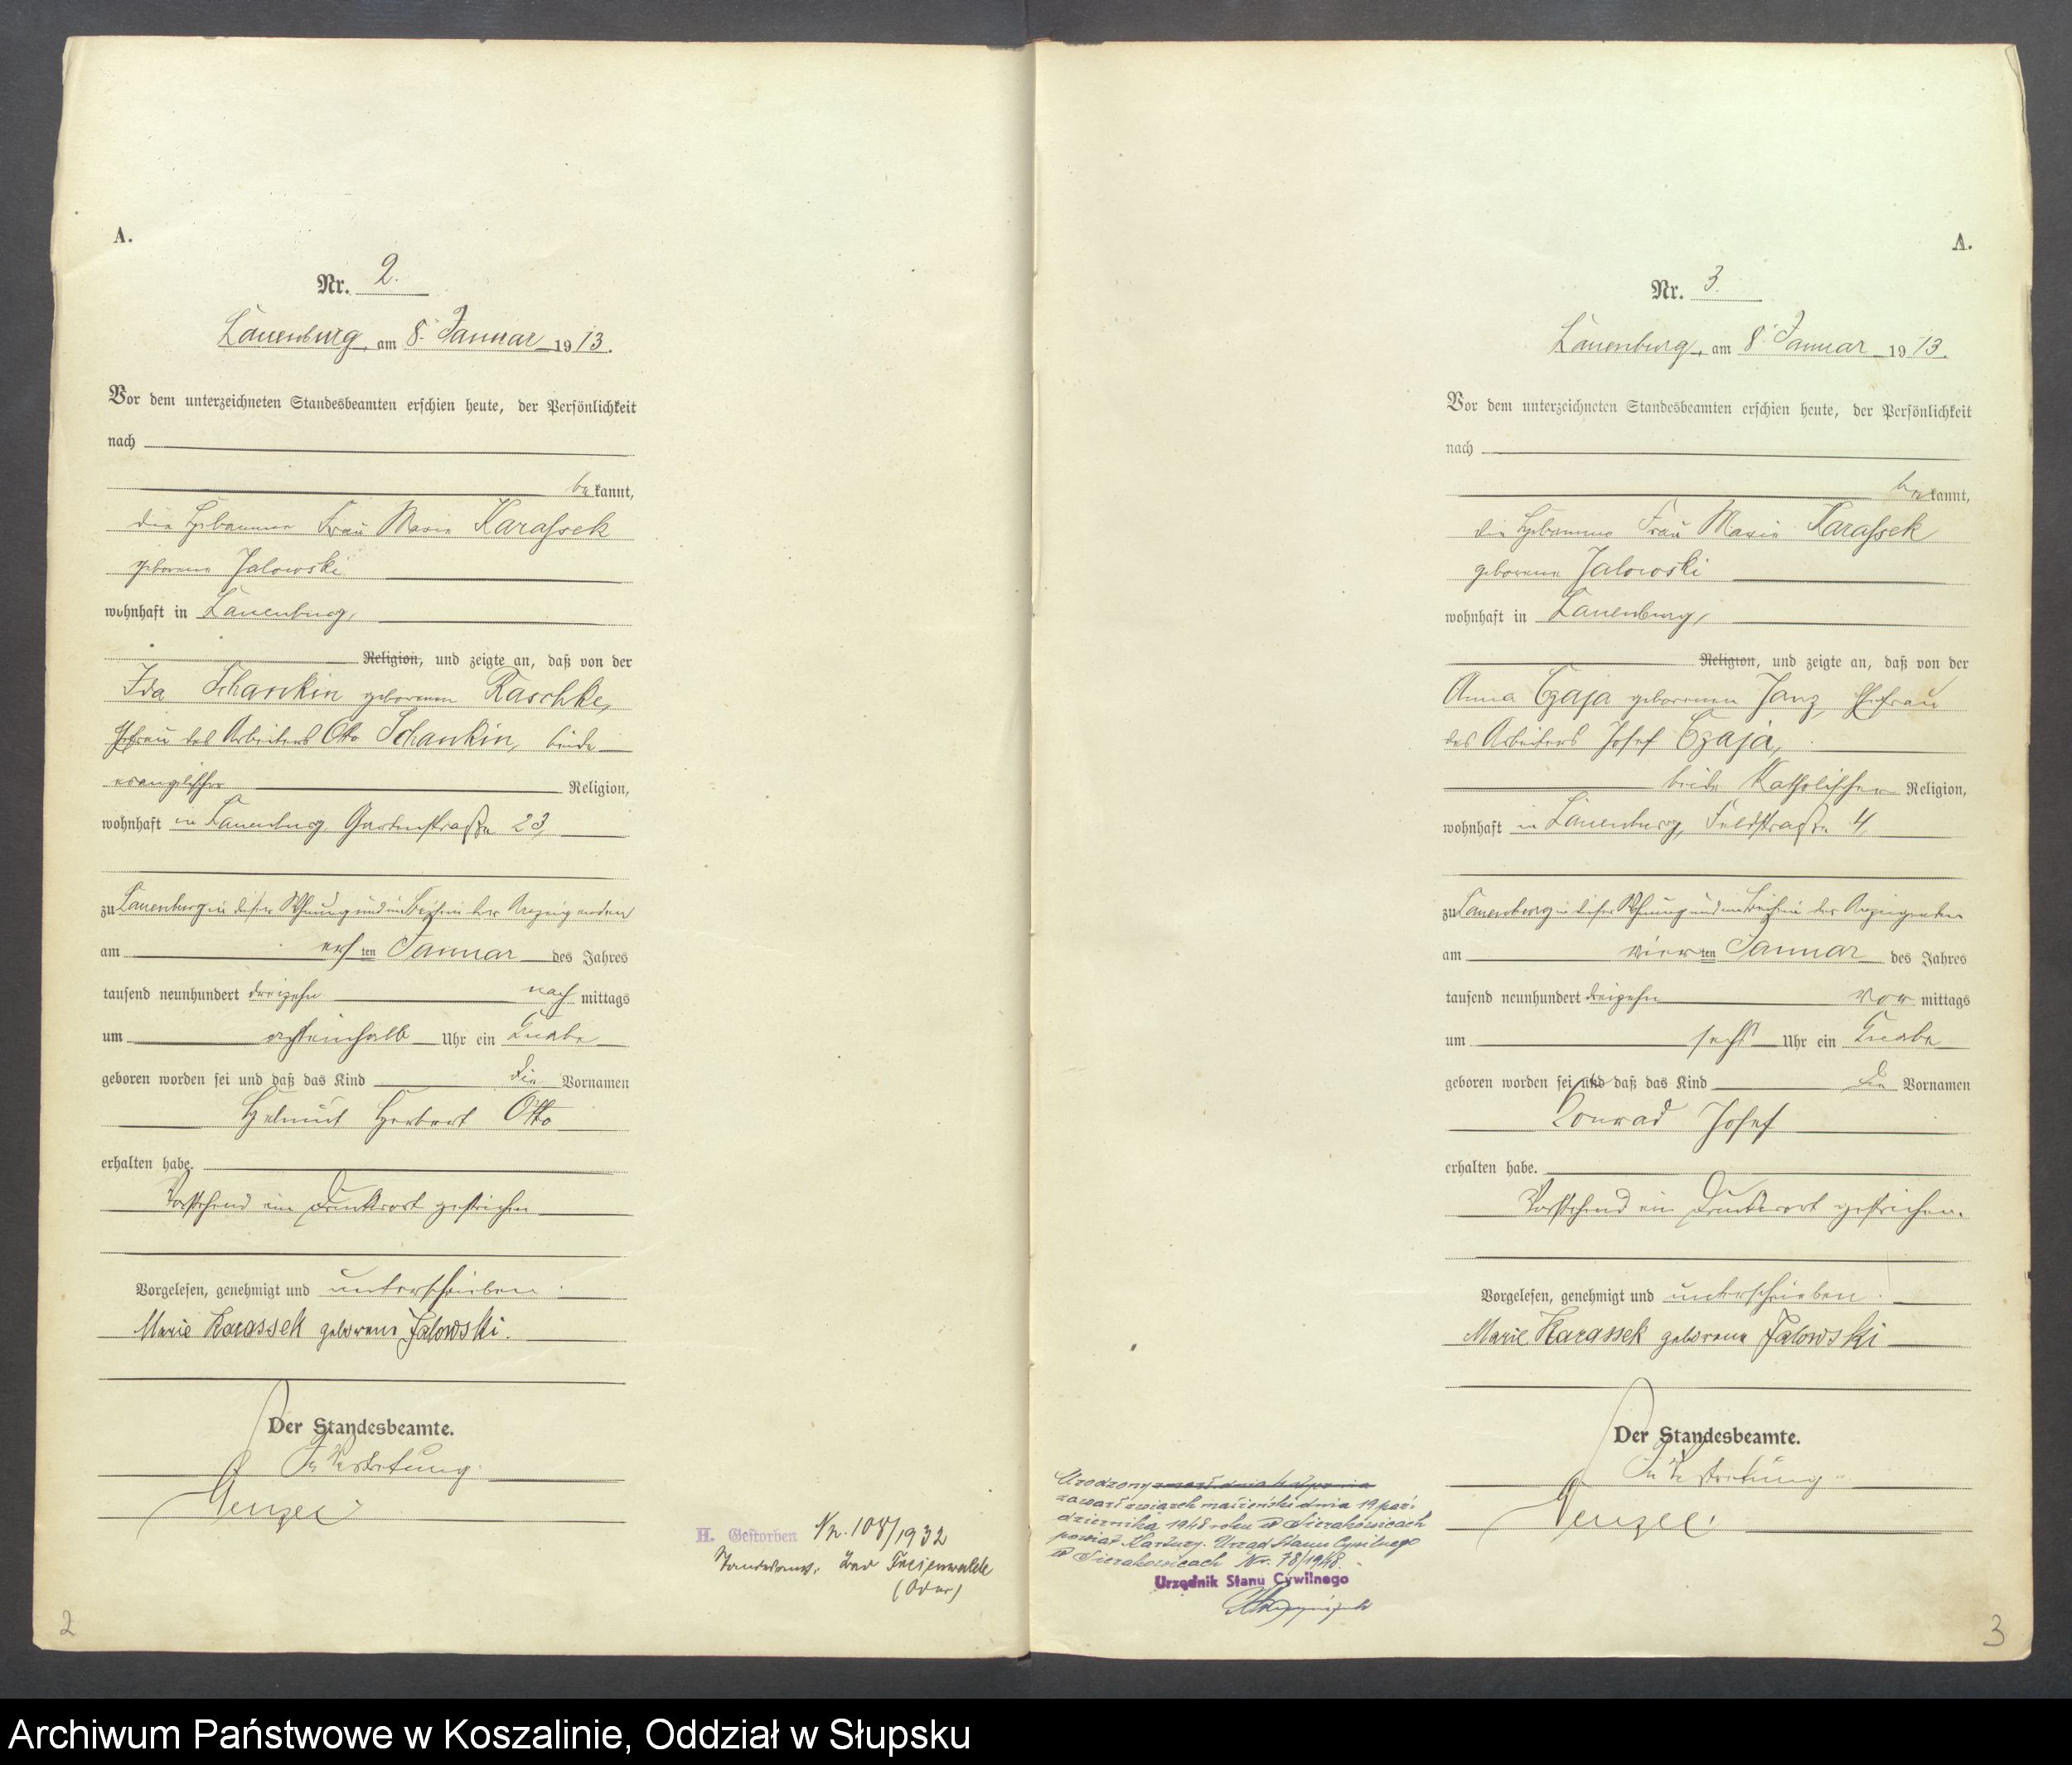 A.
Nr. 2.
Lauenburg, am 8. Januar 1913.
Vor dem unterzeichneten Standesbeamten erschien heute, der Persönlichkeit
nach
bekannt,
die Hebamme Frau Marie Karassek
geborene Jalowski
wohnhaft in Lauenburg,
Religion, und zeigte an, daß von der
Ida Schankin geborenen Raschke,
Ehefrau des Arbeiters Otto Schankin, beide
evangelischer Religion,
wohnhaft in Lauenburg, Gartenstraße 23,
zu Lauenburg in dieser Wohnung und im Beisein der Anzeigenden
am ersten Januar des Jahres
tausend neunhundert dreizehn nachmittags
um achteinhalb Uhr ein Knabe
geboren worden sei und daß das Kind die Vornamen
Helmut Herbert Otto
erhalten habe.
Vorstehend ein Druckwort gestrichen
Vorgelesen, genehmigt und unterschrieben.
Marie Karassek geborene Jalowski.
Der Standesbeamte.
In Vertretung.
Wenzel
H. Gestorben Nr. 108/1932
Standesamt Bad Freienwalde
(Oder)
2
A.
Nr. 3.
Lauenburg, am 8. Januar 1913.
Vor dem unterzeichneten Standesbeamten erschien heute, der Persönlichkeit
nach
bekannt,
die Hebamme Frau Marie Karassek
geborene Jalowski
wohnhaft in Lauenburg,
Religion, und zeigte an, daß von der
Anna Czaja geborenen Janz, Ehefrau
des Arbeiters Josef Czaja,
beide Katholischer Religion,
wohnhaft in Lauenburg, Feldstraße 4,
zu Lauenburg in dieser Wohnung und im Beisein der Anzeigenden
am vierten Januar des Jahres
tausend neunhundert dreizehn vormittags
um sechs Uhr ein Knabe
geboren worden sei und daß das Kind die Vornamen
Konrad Josef
erhalten habe.
Vorstehend ein Druckwort gestrichen.
Vorgelesen, genehmigt und unterschrieben.
Marie Karassek geborene Jalowski
Der Standesbeamte.
In Vertretung.
Wenzel
Urodzony
zawarł związek małżeński dnia 19 paź-
dziernika 1948 roku w Sierakowicach
powiat Kartuzy. Urząd Stanu Cywilnego
w Sierakowicach Nr. 78/1948.
Urzędnik Stanu Cywilnego
3
Archiwum Państwowe w Koszalinie, Oddział w Słupsku